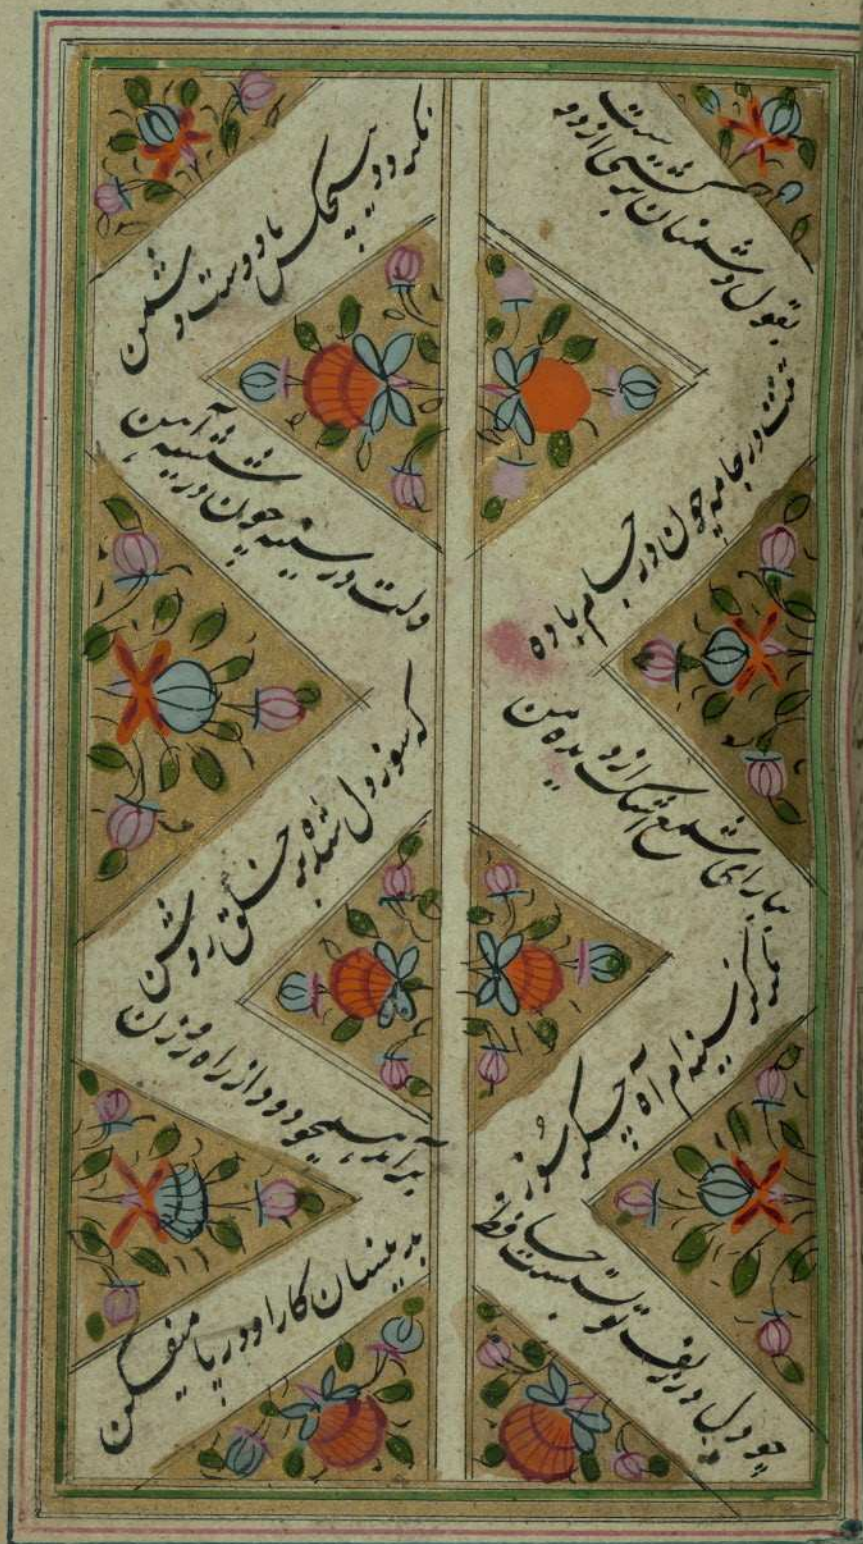 بقول دشمنان برگشتی از دوست
نگردد هیچکس با دوست دشمن
تنت در جامه چون در جام باده
دلت در سینه چون در شیشه آهن
ببار ای شمع اشک از دیده من
که سوز دل شده بر خلق روشن
کز سینه ام آه جگر سوز
برآید همچو دود از راه روزن
چو دل در زلف تو بستست حافظ
بدینسان کار او در پا میفکن